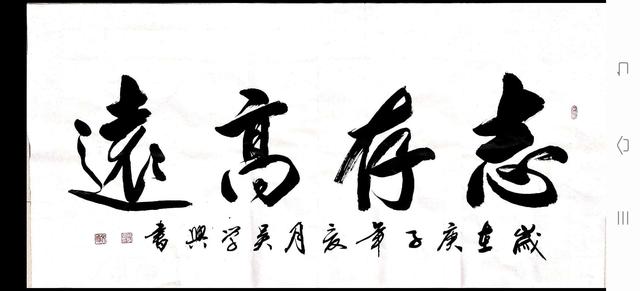 志存高遠
歲在庚子年夏月吴学興書